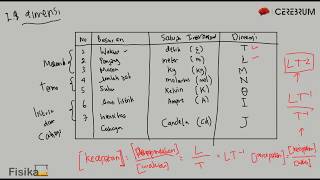 1.4 dimensi
CEREBRUM
No Besaran Satuan Internasional Dimensi
1 Waktu detik (s) T
2 Panjang meter (m) L
3 Massa kg (kg) M
4 Jumlah zat molaritas (mol) N
5 Suhu Kelvin (K) θ
6 Kuat listrik Ampere (A) I
7 Intensitas Cahaya Candela (cd) J
Termo
listrik dan Cahaya
LT-2
LT-1
T
[kecepatan] = [Perpindahan] / [waktu] = L / T = LT-1
[percepatan] = [kecepatan] / [waktu]
Fisika